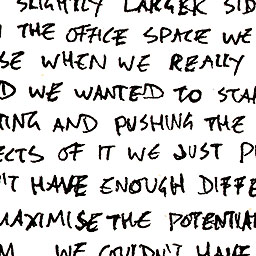 SLIGHTLY LARGER SID
THE OFFICE SPACE WE
SE WHEN WE REALLY
D WE WANTED TO STA
TING AND PUSHING THE
ECTS OF IT WE JUST P
'T HAVE ENOUGH DIFFE
MAXIMISE THE POTENTIA
WE COULDN'T HAVE